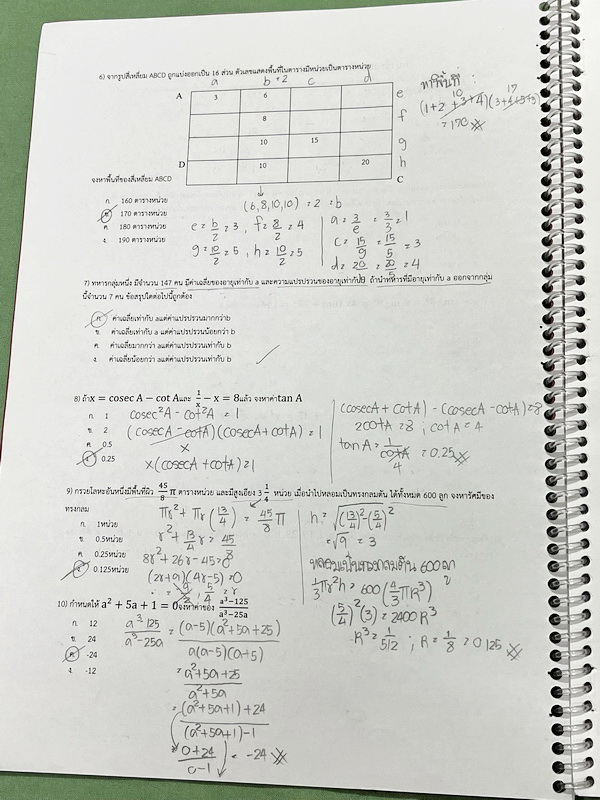 6) จากรูปสี่เหลี่ยม ABCD ถูกแบ่งออกเป็น 16 ส่วน ตัวเลขแสดงพื้นที่ในตารางมีหน่วยเป็นตารางหน่วย
a b=2 c d
A 3 6 e
8 f
10 15 g
D 10 20 h
C
หาพื้นที่ :
10 17
(1+2+3+4)(3+4+5+5)
= 170
จงหาพื้นที่ของสี่เหลี่ยม ABCD
ก. 160 ตารางหน่วย
ข. 170 ตารางหน่วย
ค. 180 ตารางหน่วย
ง. 190 ตารางหน่วย
(6,8,10,10) = 2 = b
e = b/2 = 3 , f = 8/2 = 4
g = 10/2 = 5 , h = 10/2 = 5
a = 3/e = 3/3 = 1
c = 15/g = 15/5 = 3
d = 20/h = 20/5 = 4
7) ทหารกลุ่มหนึ่ง มีจำนวน 147 คน มีค่าเฉลี่ยของอายุเท่ากับ a และความแปรปรวนของอายุเท่ากับb ถ้านำทหารที่มีอายุเท่ากับ a ออกจากกลุ่ม
นี้จำนวน 7 คน ข้อสรุปใดต่อไปนี้ถูกต้อง
ก. ค่าเฉลี่ยเท่ากับ aแต่ค่าแปรปรวนมากกว่าb
ข. ค่าเฉลี่ยเท่ากับ aแต่ค่าแปรปรวนน้อยกว่า b
ค. ค่าเฉลี่ยมากกว่า aแต่ค่าแปรปรวนเท่ากับ b
ง. ค่าเฉลี่ยน้อยกว่า aแต่ค่าแปรปรวนเท่ากับ b
8) ถ้าx = cosec A − cot Aและ 1/x − x = 8แล้ว จงหาค่าtan A
ก. 1
ข. 2
ค. 0.5
ง. 0.25
cosec²A − cot²A = 1
(cosecA − cotA)(cosecA + cotA) = 1
x
x(cosecA + cotA) = 1
(cosecA + cotA) − (cosecA − cotA) = 8
2cotA = 8 ; cotA = 4
tanA = 1/cotA = 0.25
4
9) กรวยโลหะอันหนึ่งมีพื้นที่ผิว 45/8 π ตารางหน่วย และมีสูงเอียง 3 1/4 หน่วย เมื่อนำไปหลอมเป็นทรงกลมตัน ได้ทั้งหมด 600 ลูก จงหารัศมีของ
ทรงกลม
ก. 1หน่วย
ข. 0.5หน่วย
ค. 0.25หน่วย
ง. 0.125หน่วย
πr² + πr(13/4) = 45/8 π
r² + 13/4 r = 45/8
8r² + 26r − 45 = 0
(2r+9)(4r−5) = 0
−9/2, 5/4 = r
h = √((13/4)² − (5/4)²)
= √9 = 3
หลอมเป็นทรงกลมตัน 600 ลูก
1/3 πr²h = 600(4/3 πR³)
(5/4)²(3) = 2400R³
R³ = 1/512 ; R = 1/8 = 0.125
10) กำหนดให้ a² + 5a + 1 = 0จงหาค่าของ a³−125/a³−25a
ก. 12
ข. 24
ค. -24
ง. -12
a³−125/a³−25a = (a−5)(a²+5a+25)/a(a−5)(a+5)
= a²+5a+25/a²+5a
= (a²+5a+1)+24/(a²+5a+1)−1
0+24/0−1 = −24